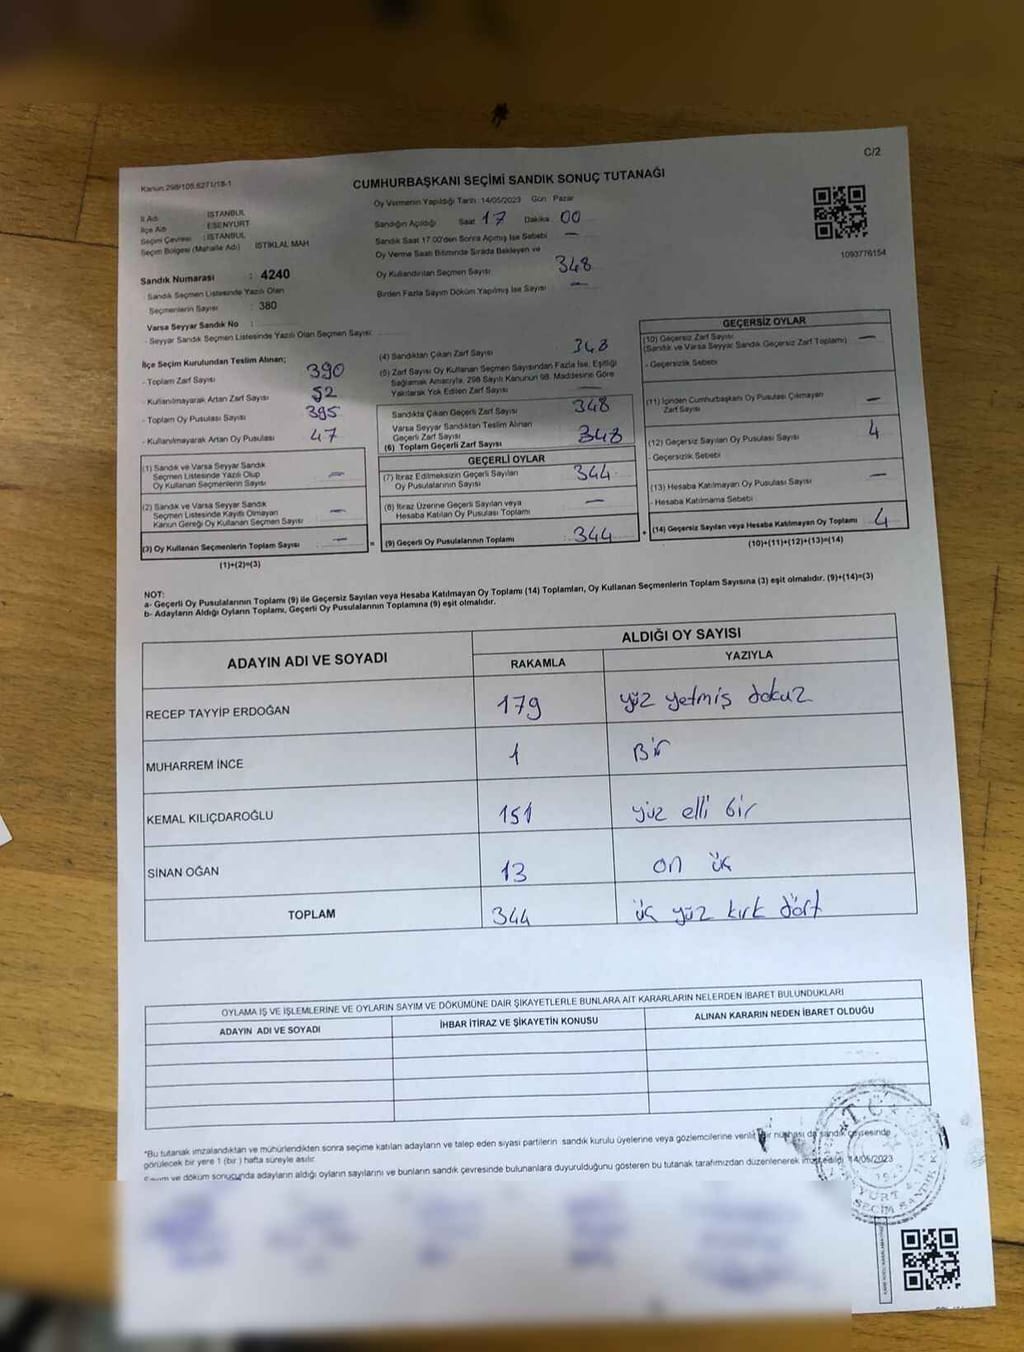 C/2
Kanun 298/105.6271/18-1
CUMHURBAŞKANI SEÇİMİ SANDIK SONUÇ TUTANAĞI
İl Adı : İSTANBUL
İlçe Adı : ESENYURT
Seçim Çevresi : İSTANBUL
Seçim Bölgesi (Mahalle Adı) İSTİKLAL MAH
Sandık Numarası : 4240
Sandık Seçmen Listesinde Yazılı Olan
Seçmenlerin Sayısı : 380
Varsa Seyyar Sandık No :
- Seyyar Sandık Seçmen Listesinde Yazılı Olan Seçmen Sayısı:
Oy Vermenin Yapıldığı Tarih 14/05/2023 Gün Pazar
Sandığın Açıldığı Saat 17 Dakika 00
Sandık Saat 17.00'den Sonra Açılmış İse Sebebi —
Oy Verme Saati Bitiminde Sırada Bekleyen ve
Oy Kullandırılan Seçmen Sayısı 348
Birden Fazla Sayım Döküm Yapılmış İse Sayısı —
1093776154
İlçe Seçim Kurulundan Teslim Alınan;
- Toplam Zarf Sayısı 390
- Kullanılmayarak Artan Zarf Sayısı 52
- Toplam Oy Pusulası Sayısı 395
- Kullanılmayarak Artan Oy Pusulası 47
(1) Sandık ve Varsa Seyyar Sandık
Seçmen Listesinde Yazılı Olup
Oy Kullanan Seçmenlerin Sayısı —
(2) Sandık ve Varsa Seyyar Sandık
Seçmen Listesinde Kayıtlı Olmayan
Kanun Gereği Oy Kullanan Seçmen Sayısı —
(3) Oy Kullanan Seçmenlerin Toplam Sayısı —
(1)+(2)=(3)
(4) Sandıktan Çıkan Zarf Sayısı 348
(5) Zarf Sayısı Oy Kullanan Seçmen Sayısından Fazla İse, Eşitliği
Sağlamak Amacıyla, 298 Sayılı Kanunun 98. Maddesine Göre
Yakılarak Yok Edilen Zarf Sayısı —
Sandıkta Çıkan Geçerli Zarf Sayısı 348
Varsa Seyyar Sandıktan Teslim Alınan
Geçerli Zarf Sayısı
(6) Toplam Geçerli Zarf Sayısı 348
GEÇERLİ OYLAR
(7) İtiraz Edilmeksizin Geçerli Sayılan
Oy Pusulasının Sayısı 344
(8) İtiraz Üzerine Geçerli Sayılan veya
Hesaba Katılan Oy Pusulası Toplamı —
= (9) Geçerli Oy Pusulalarının Toplamı : 344
GEÇERSİZ OYLAR
(10) Geçersiz Zarf Sayısı
(Sandık ve Varsa Seyyar Sandık Geçersiz Zarf Toplamı) —
- Geçersizlik Sebebi
(11) İçinden Cumhurbaşkanı Oy Pusulası Çıkmayan
Zarf Sayısı —
(12) Geçersiz Sayılan Oy Pusulası Sayısı 4
- Geçersizlik Sebebi
(13) Hesaba Katılmayan Oy Pusulası Sayısı —
- Hesaba Katılmama Sebebi
+ (14) Geçersiz Sayılan veya Hesaba Katılmayan Oy Toplamı 4
(10)+(11)+(12)+(13)=(14)
NOT:
a- Geçerli Oy Pusulalarının Toplamı (9) ile Geçersiz Sayılan veya Hesaba Katılmayan Oy Toplamı (14) Toplamları, Oy Kullanan Seçmenlerin Toplam Sayısına (3) eşit olmalıdır. (9)+(14)=(3)
b- Adayların Aldığı Oyların Toplamı, Geçerli Oy Pusulalarının Toplamına (9) eşit olmalıdır.
ADAYIN ADI VE SOYADI
ALDIĞI OY SAYISI
RAKAMLA YAZIYLA
RECEP TAYYİP ERDOĞAN 179 yüz yetmiş dokuz
MUHARREM İNCE 1 Bir
KEMAL KILIÇDAROĞLU 151 yüz elli bir
SİNAN OĞAN 13 on üç
TOPLAM 344 üç yüz kırk dört
OYLAMA İŞ VE İŞLEMLERİNE VE OYLARIN SAYIM VE DÖKÜMÜNE DAİR ŞİKAYETLERLE BUNLARA AİT KARARLARIN NELERDEN İBARET BULUNDUKLARI
ADAYIN ADI VE SOYADI İHBAR İTİRAZ VE ŞİKAYETİN KONUSU ALINAN KARARIN NEDEN İBARET OLDUĞU
*Bu tutanak imzalandıktan ve mühürlendikten sonra seçime katılan adayların ve talep eden siyasi partilerin sandık kurulu üyelerine veya gözlemcilerine verilir. Bir nüshası da sandık çevresinde
görülecek bir yere 1 (bir) hafta süreyle asılır.
Sayım ve döküm sonucunda adayların aldığı oyların sayılarını ve bunların sandık çevresinde bulunanlara duyurulduğunu gösteren bu tutanak tarafımızdan düzenlenerek 14/05/2023
T.C.